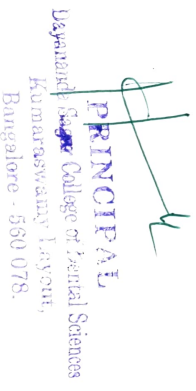 PRINCIPAL
Dayananda Sagar College of Dental Sciences
Kumaraswamy Layout,
Bangalore - 560 078.